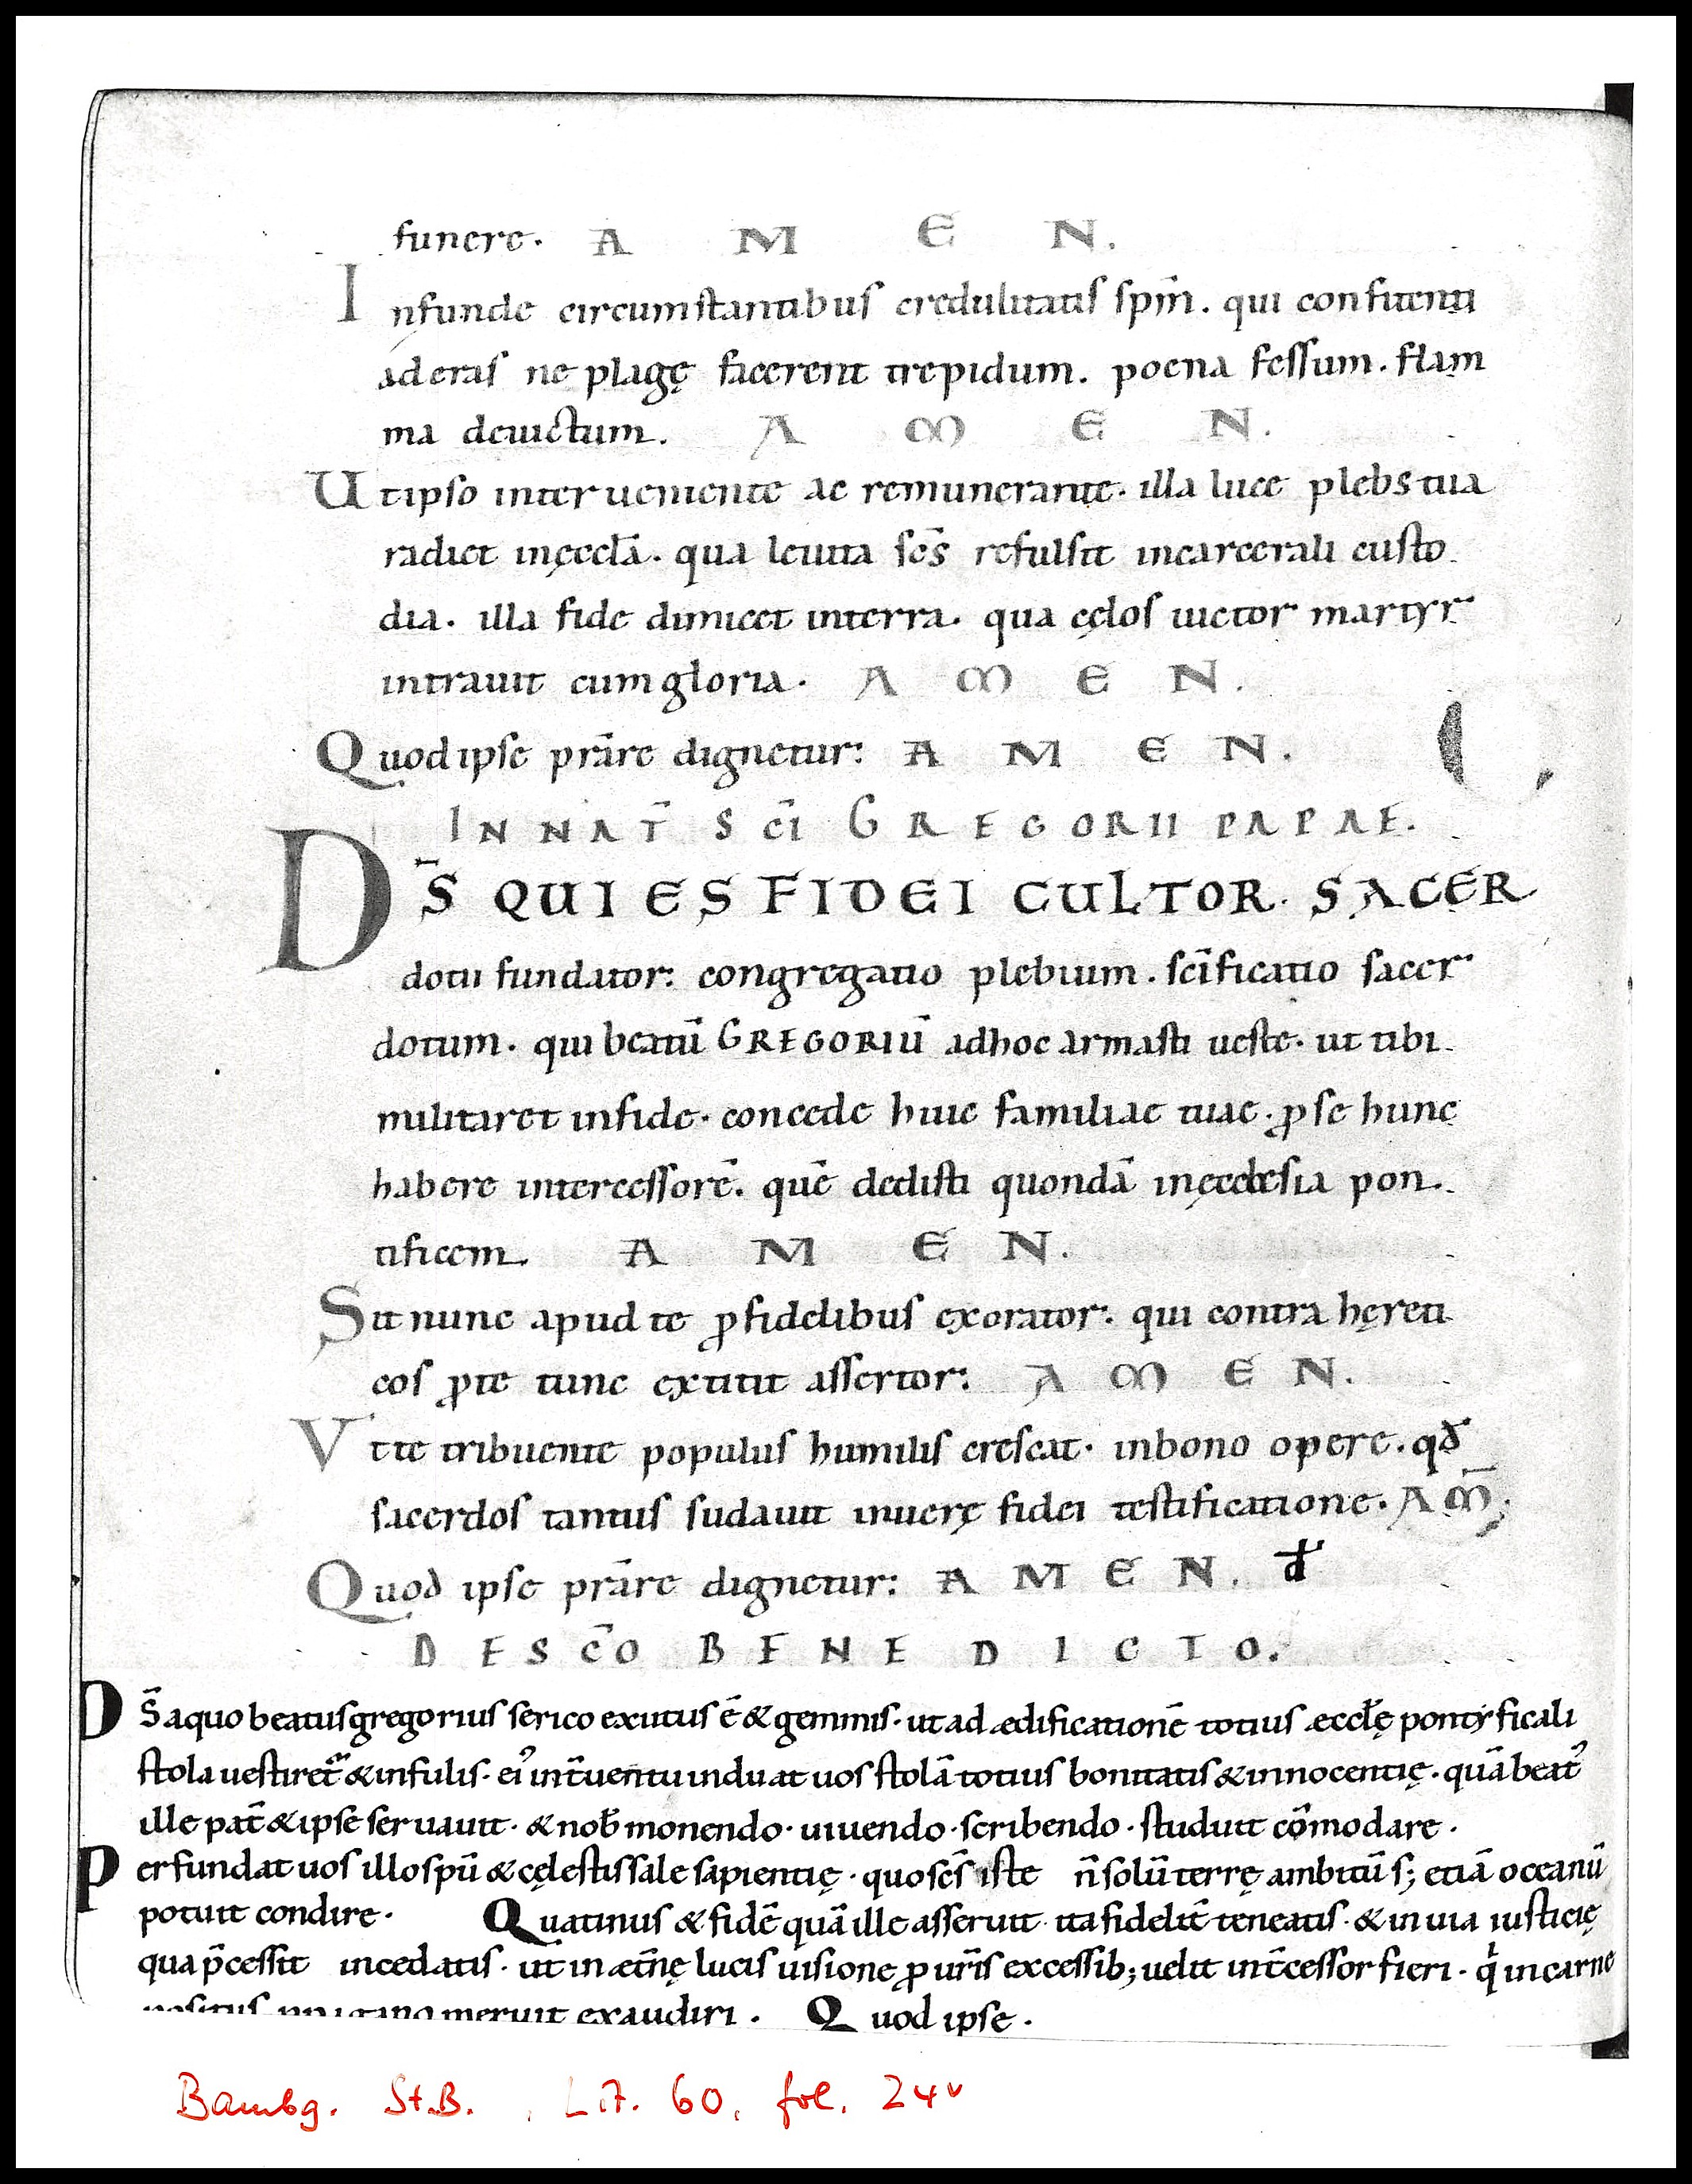 funere. A M E N.
Infunde circumstantibus credulitatis spm̄. qui confitenti
aderas ne plagę facerent trepidum. poena fessum. flam
ma deuictum. A M E N.
Utipso interueniente ac remunerante. illa luce plebs tua
radiet inęcclā. qua leuita scs̄ refulsit incarcerali custo
dia. illa fide dimicet interra. qua cęlos uictor martyr
intrauit cumgloria. A M E N.
Quodipse prārē dignetur: A M E N.
IN NAT̄ SC̄I GREGORII PAPAE.
DS̄ QUI ES FIDEI CULTOR. SACER
dotii fundator: congregatio plebium. scīficatio sacer
dotum. qui beatū GREGORIŪ adhoc armasti ueste. ut tibi
militaret infide. concede huic familiae tuae. ꝓ se hunc
habere intercessorē. quē dedisti quondā inęcclesia pon
tificem. A M E N.
Sit nunc apud te ꝓfidelibus exorator: qui contra hęreti
cos ꝓte tunc extitit assertor: A M E N.
Vt te tribuente populus humilis crescat. inbono opere. qđ
sacerdos tantus sudauit inuerę fidei testificatione. AM̄;
Quod ipse prārē dignetur: A M E N. đ
DE SC̄O BENEDICTO.
Ds̄ aquo beatus gregorius serico exutus ē & gemmis. ut ad ædificationē totius æcclę pontyficali
stola uestiret̄ & infulis. ei᾽ int̄uentu induat uos stolā totius bonitatis & innocentię. quā beat᾽
ille pat̄ & ipse seruauit. & nob̄ monendo. uiuendo. scribendo. studuit cōmodare.
Perfundat uos illo spū & cęlestis sale sapientię. quo scs̄ iste n̄ solū terrę ambitū s; etiā oceanū
potuit condire. Quatinus & fidē quā ille asseruit ita fidelit̄ teneatis. & in uia iusticię
qua p̄cessit incedatis. ut in æt̄nę lucis uisione ꝓ ur̄is excessib; uelit int̄cessor fieri. qͥ in carne
meruit exaudiri. Quod ipse.
Bambg. St.B., Lit. 60, fol. 24v